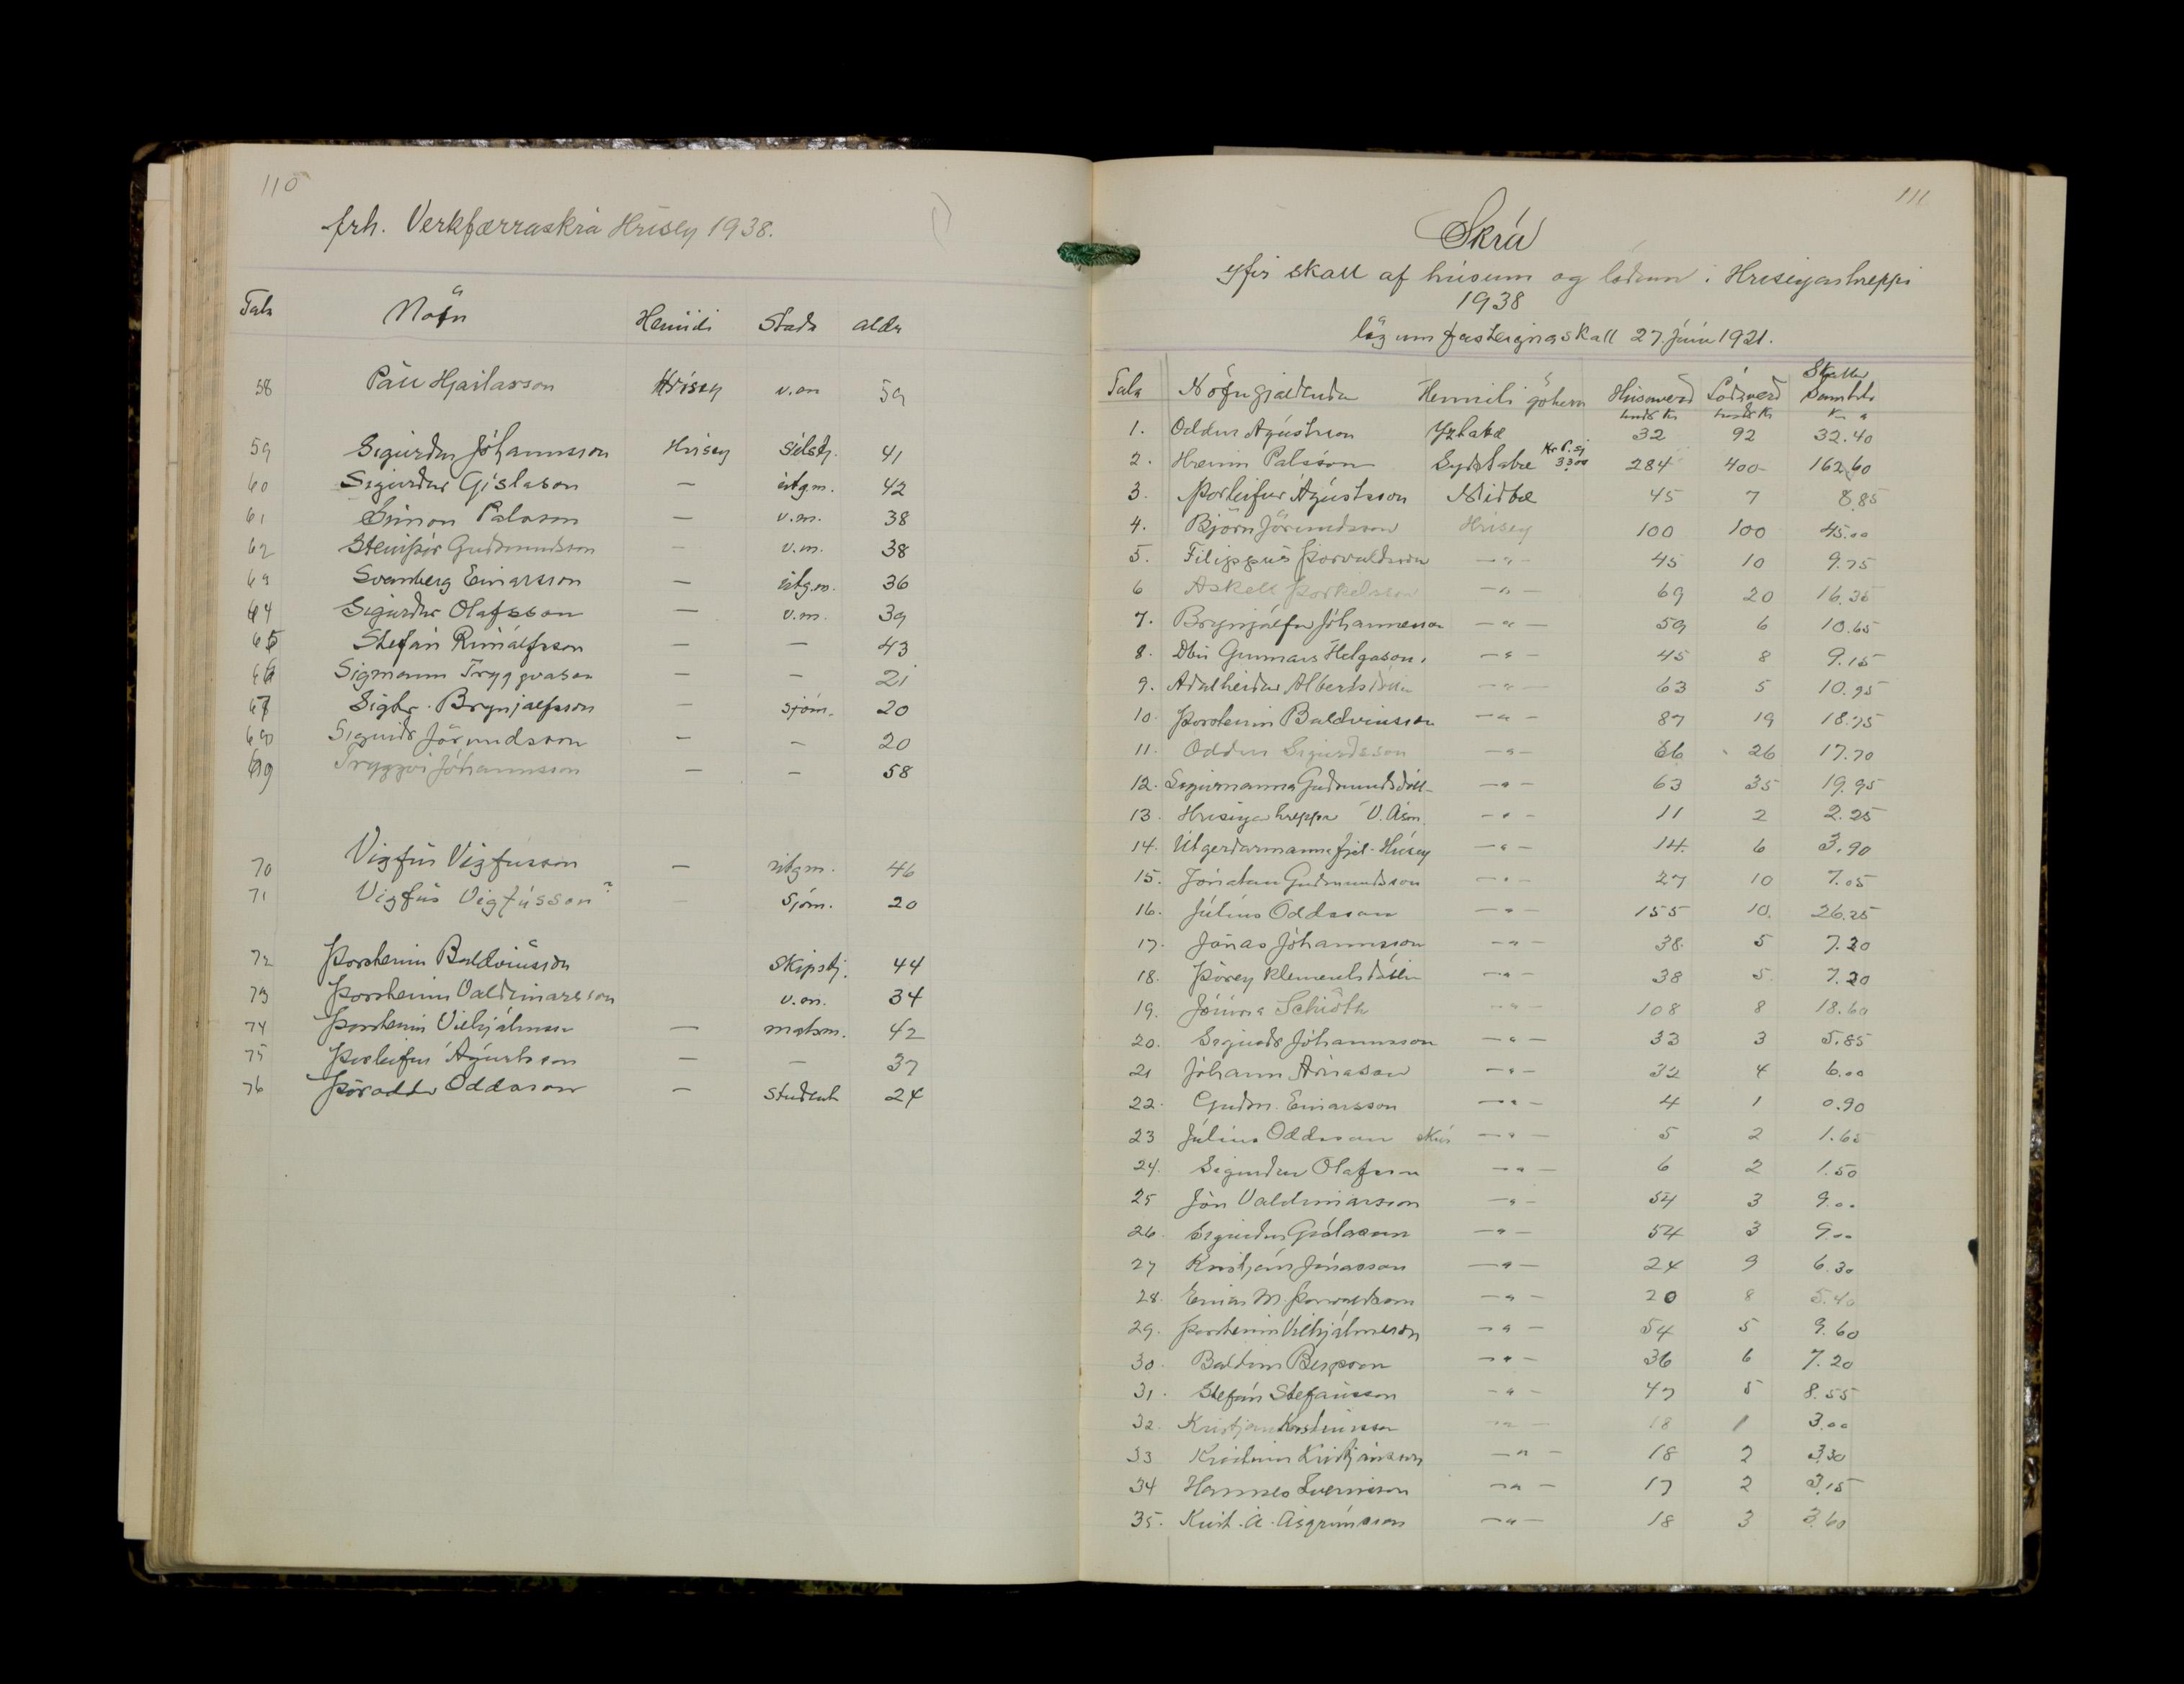 110
frh. Verkfærraskrá Hrísey 1938.
Tala Nöfn Heimili Staða aldr
58 Páll Hjartarson Hrísey v.m 59
59 Sigurður Jóhannsson Hrísey 41
60 Sigurður Gíslason — útg.m. 42
61 Símon Pálsson — v.m. 38
62 Steinþór Guðmundsson — v.m. 38
63 Svanberg Einarsson — útg.m. 36
64 Sigurður Ólafsson — v.m. 39
65 Stefán Runólfsson — — 43
66 Sigmann Tryggvason — — 21
67 Sigtr. Brynjólfsson — sjóm. 20
68 Sigurðr Jörundsson — — 20
69 Tryggvi Jóhannsson — — 58
70 Vigfús Vigfússon — útgm. 46
71 Vigfús Vigfússon — Sjóm. 20
72 Þorsteinn Baldvinsson Skipstj. 44
73 Þorsteinn Valdimarsson v.m. 34
74 Þorsteinn Vilhjálmsson — matsm. 42
75 Þorleifur Ágústsson — — 37
76 Þóroddr Oddsson — Student 24
111
Skrá
yfir skatt af húsum og lóðum í Hríseyjarhreppi
1938
lög um fasteignaskatt 27. júní 1921.
Tala Nöfn gjaldenda Heimili Húsaverð Lóðaverð Skattur Samtals
hndr kr hndr kr
1. Oddur Ágústsson Yztabæ 32 92 32.40
2. Hreinn Pálsson Syðstabæ 284 400 162.60
3. Þorleifur Ágústsson Miðbæ 45 7 8.85
4. Björn Jörundsson Hrísey 100 100 45.00
5. Filippus Þorvaldsson —"— 45 10 9.75
6 Áskell Þorkelsson —"— 69 20 16.35
7. Brynjólfur Jóhannesson —"— 59 6 10.65
8. Dbú Gunnars Helgason. —"— 45 8 9.15
9. Aðalheiður Albertsdóttir —"— 63 5 10.95
10. Þorsteinn Baldvinsson —"— 87 19 18.75
11. Oddur Sigurðsson —"— 66 26 17.70
12. Sigurnanna Guðmundsdótt— —"— 63 35 19.95
13. Hríseyjarhreppr V. Ásm. —"— 11 2 2.25
14. Útgerðarmannafjél. Hrísey —"— 14. 6 3.90
15. Jónatan Guðmundsson —"— 27 10 7.05
16. Júlíus Oddsson —"— 155 10. 26.25
17. Jónas Jóhannsson —"— 38. 5 7.20
18. Þórey Klementsdóttir —"— 38 5 7.20
19. Jónína Schiöth —"— 108 8 18.60
20. Sigurðr Jóhannsson —"— 33 3 5.85
21 Jóhann Árnason —"— 32 4 6.00
22. Guðm. Einarsson —"— 4 1 0.90
23 Júlíus Oddsson skúr —"— 5 2 1.65
24. Sigurður Ólafsson —"— 6 2 1.50
25 Jón Valdimarsson —"— 54 3 9.00
26. Sigurður Gíslason —"— 54 3 9.00
27 Kristján Jónasson —"— 24 9 6.30
28. Einar M. Þorvaldsson —"— 20 8 5.40
29. Þorsteinn Vilhjálmsson —"— 54 5 9.60
30. Baldvin Bergsson —"— 36 6 7.20
31. Stefán Stefánsson —"— 47 5 8.55
32. Kristján Kristinsson —"— 18 1 3.00
33 Kristinn Kristjánsson —"— 18 2 3.30
34 Hannes Sveinsson —"— 17 2 3.15
35. Krist. Á. Ásgrímsson —"— 18 3 3.60